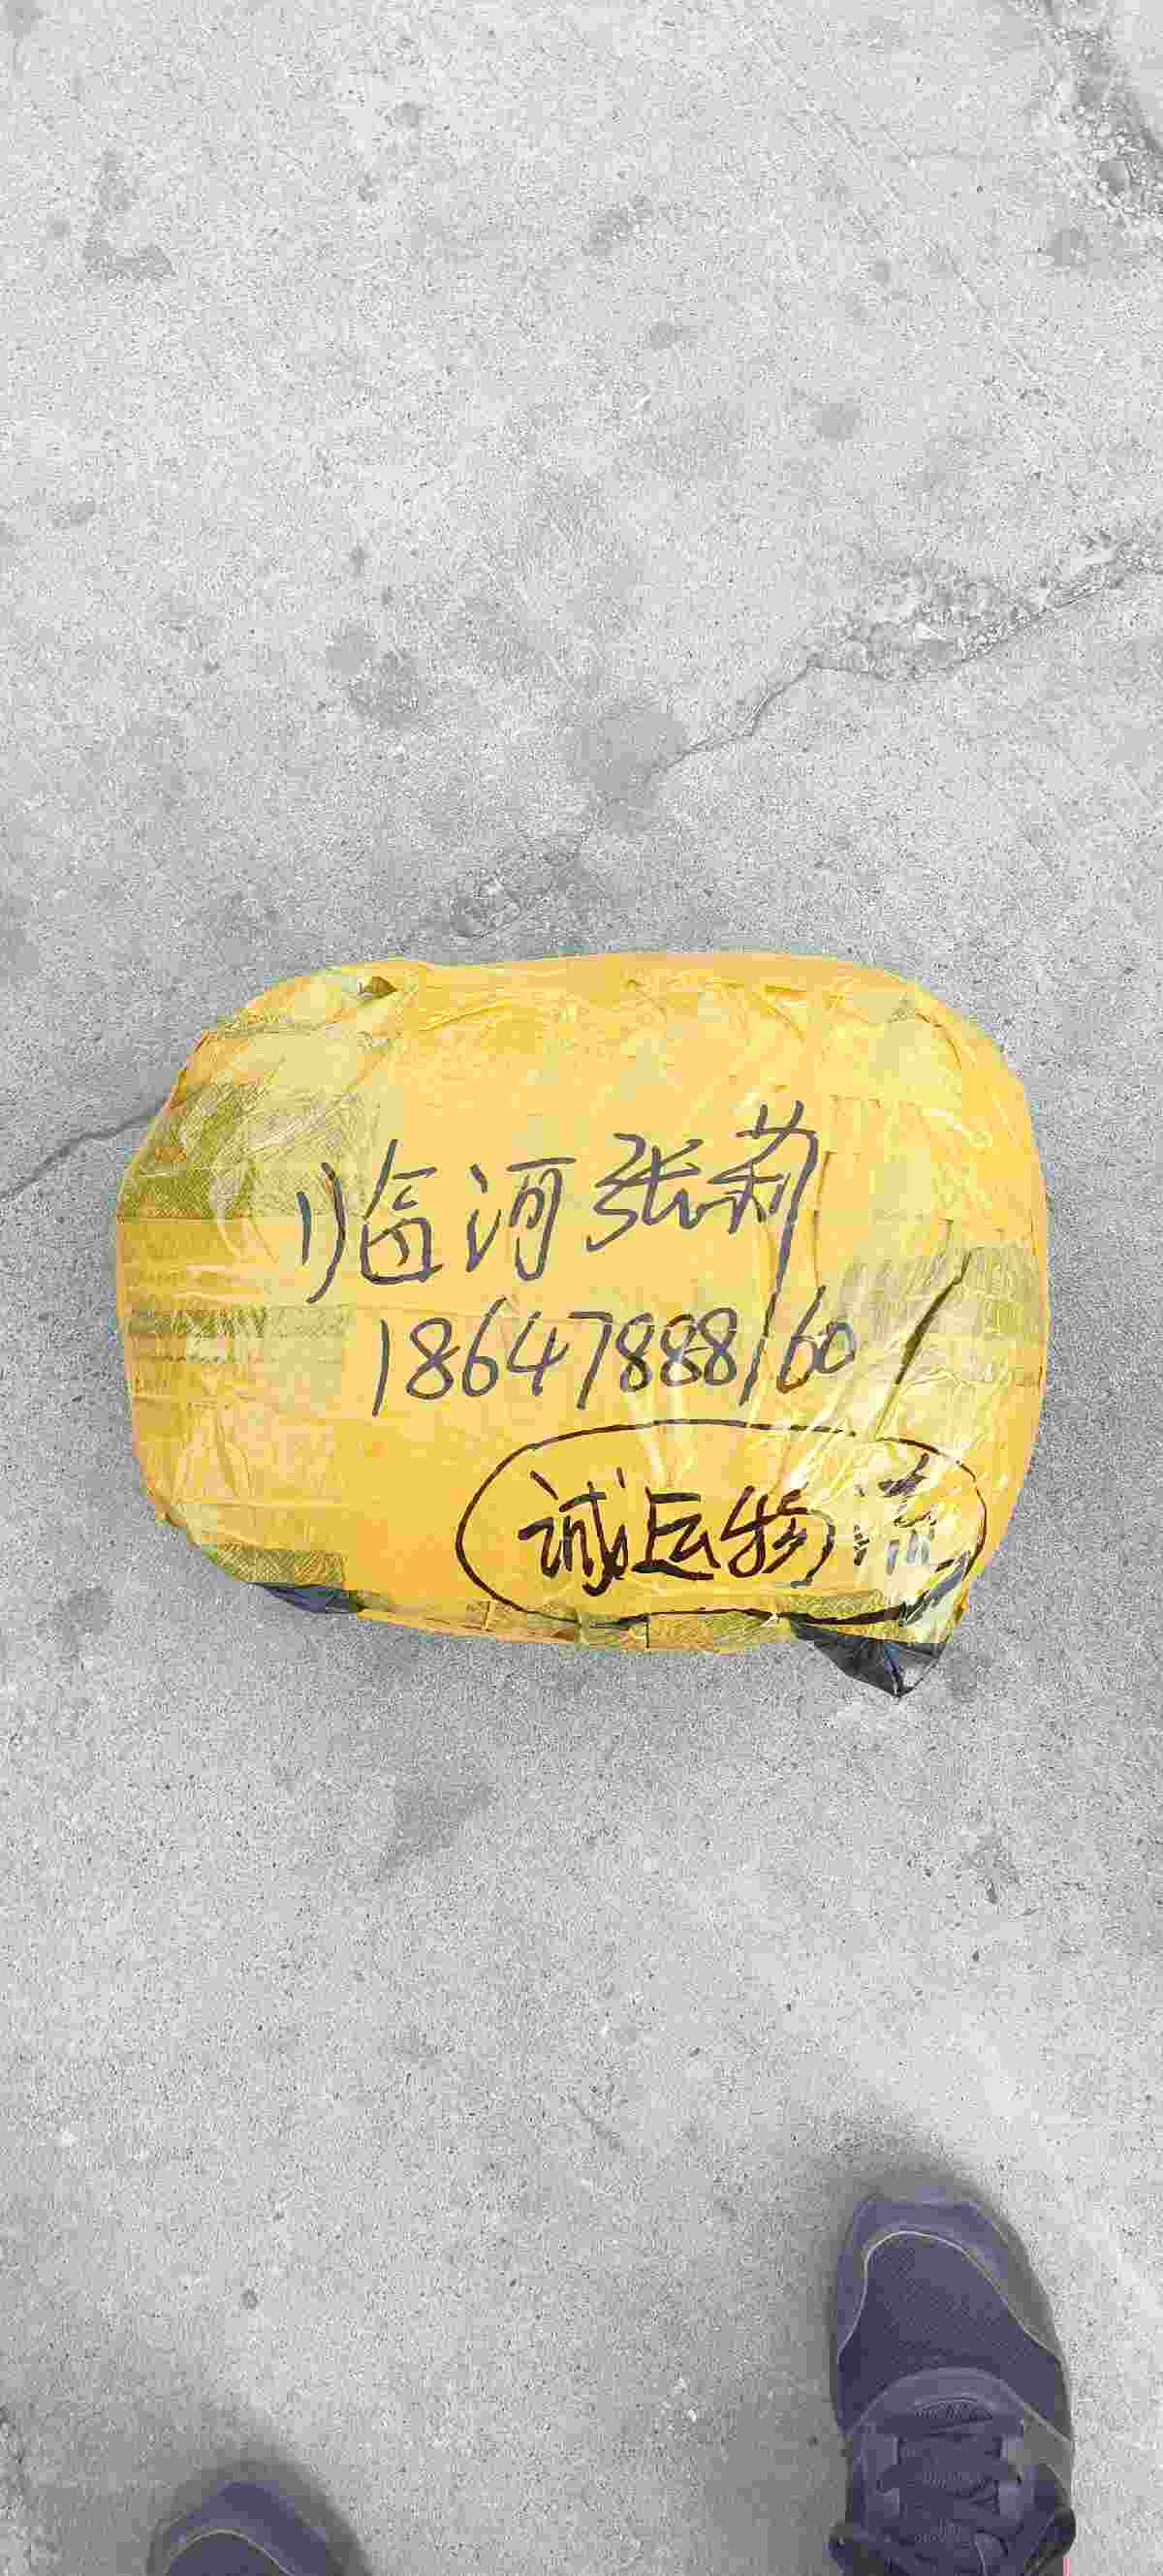 临河张莉
18647888160
诚运物流